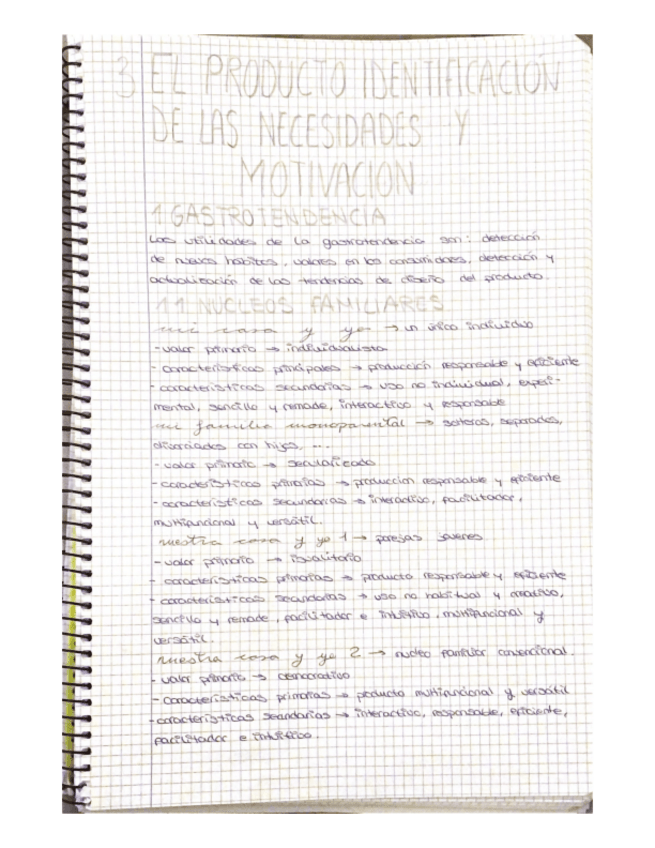 3 EL PRODUCTO IDENTIFICACIÓN
DE LAS NECESIDADES Y
MOTIVACION
1 GASTROTENDENCIA
Las utilidades de la gastrotendencia son: detección
de nuevos hábitos, valores en los consumidores, detección y
actualización de las tendencias de diseño del producto.
1.1 NUCLEOS FAMILIARES
mi casa y yo → un único individuo
- valor primario → individualista
- características principales → producción responsable y eficiente
- características secundarias → uso no individual, experi-
mental, sencillo y remade, interactivo y responsable
mi familia monoparental → solteros, separados,
divorciados con hijos, ...
- valor primario → secularizado
- características primarias → produccion responsable y eficiente
- características secundarias → interactivo, facilitador,
multifuncional y versátil.
nuestra casa y yo 1 → parejas jovenes
- valor primario → igualitario
- características primarias → producto responsable y eficiente
- características secundarias → uso no habitual y creativo,
sencillo y remade, facilitador e intuitivo, multifuncional y
versátil.
nuestra casa y yo 2 → nucleo familiar convencional.
- valor primario → democratico
- características primarias → producto multifuncional y versátil
- características secundarias → interactivo, responsable, eficiente,
facilitador e intuitivo.